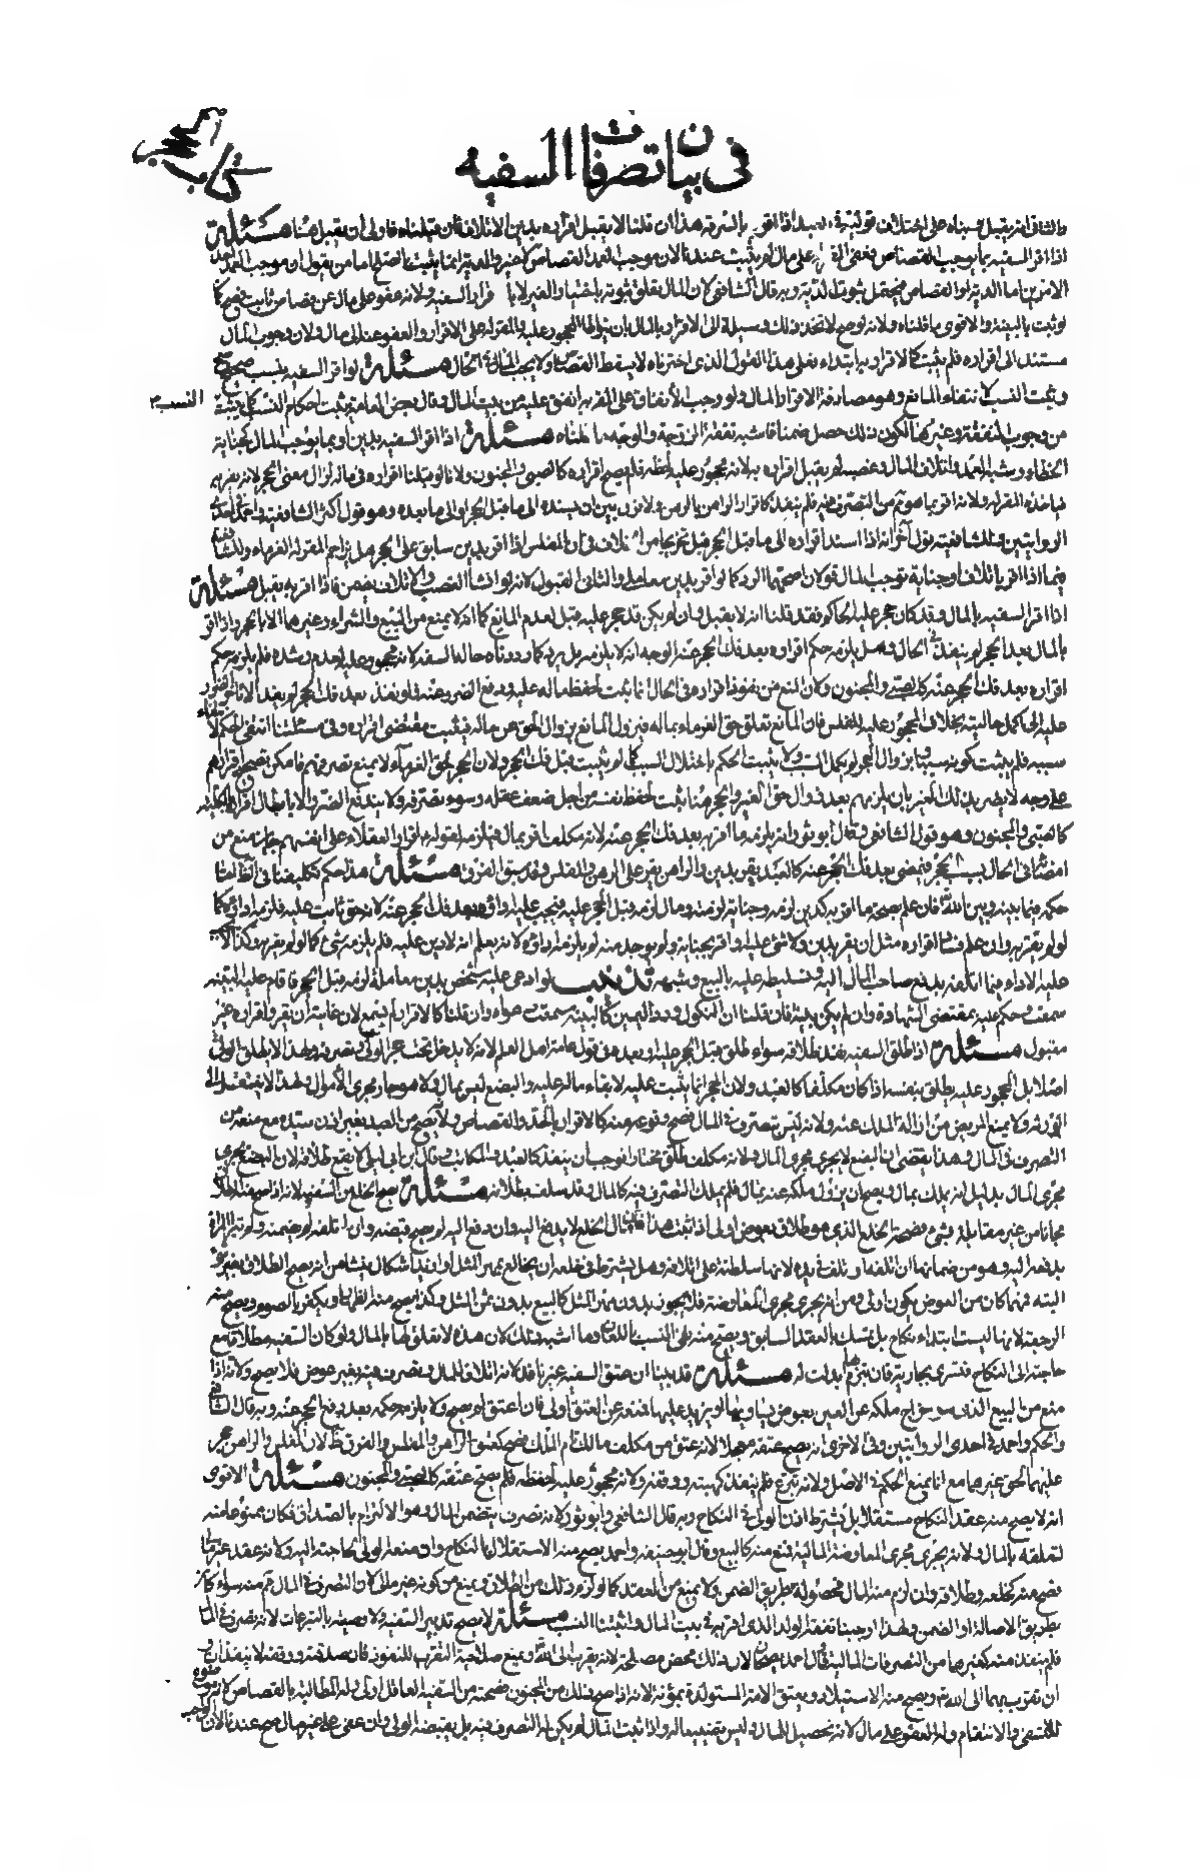 كتاب الحجر
في بيان تصرفات السفيه
والثاني انه يقبل بناه على اختلاف قوليه في العبد اذا اقر بالسرقة هذا ان قلنا لا يقبل اقراره بدين الاتلاف فان قبلناه فاولى ان يقبل هنا مسئلة
اذا اقر السفيه بما يوجب القصاص فعفى المقر له على مال لم يثبت عندنا لان موجب العمد القصاص لا غير والدية انما يثبت بالصلح اما من يقول ان موجب العمد احد
الامرين اما الدية او القصاص فيحتمل ثبوت الدية وبه قال الشافعي لان المال تعلق ثبوته باختيار الغير لا باقرار السفيه ولانه عفو على مال عن قصاص ثابت فصح كما
لو ثبت بالبينة والاقوى ما قلناه ولانه لو صح لاتخذ ذلك وسيلة الى الاقرار بالمال بان يتواطا المحجور عليه والمقر له على الاقرار والعفو عنه الى مال ولان وجوب المال
مستند الى اقراره فلم يثبت كالاقرار به ابتداء فعلى هذا القول الذي اخترناه لا يسقط القصاص ولا يجب المال في الحال مسئلة لو اقر السفيه بنسب صحيح صح
ويثبت النسب لانتفاء المانع وهو مصادفة الاقرار المال ولو وجب الانفاق على المقر به انفق عليه من بيت المال وقال بعض العامة يثبت احكام النسب كما يثبت النسب
من وجوب النفقة وغيرها لكون ذلك حصل ضمنا فاشبه نفقة الزوجة والوجه ما قلناه مسئلة اذا اقر السفيه بدين او بما يوجب المال كجناية
الخطاء وشبه العمد واتلاف المال وغصبه لم يقبل اقراره به لانه محجور عليه لحظه فلم يصح اقراره كالصبي والمجنون ولانا لو قبلنا اقراره في ماله لزال معنى الحجر لانه يقر به
فياخذه المقر له ولانه اقر بما هو ممنوع من التصرف فيه فلم ينفذ كاقرار الراهن بالرهن ولا فرق بين ان يسنده الى ما قبل الحجر او الى ما بعده وهو قول اكثر الشافعية واحمد في احدى
الروايتين وللشافعية قول آخر انه اذا اسند اقراره الى ما قبل الحجر قبل تخريجا من الخلاف في ان المفلس اذا اقر بدين سابق على الحجر هل يزاحم المقر له الغرماء وللشافعية
فيما اذا اقر باتلاف او جناية توجب المال قولان اصحهما الرد كما لو اقر بدين معاملة والثاني القبول لانه لو انشأ الغصب والاتلاف يضمن فاذا اقر به يقبل مسئلة
اذا اقر السفيه بالمال وقد كان حجر عليه الحاكم فقد قلنا انه لا يقبل وان لم يكن قد حجر عليه قبل لعدم المانع كما انه لا يمنع من البيع والشراء وغيرهما الا بالحجر واذا اقر
بالمال بعد الحجر لم ينفذ في الحال وهل يلزمه حكم اقراره بعد فك الحجر عنه الوجه انه لا يلزمه بل يرد كما رددناه حالة السفه لانه محجور عليه لعدم رشده فلم يلزمه حكم
اقراره بعد فك الحجر عنه كالصبي والمجنون ولان المنع من نفوذ اقراره في الحال انما ثبت لحفظ ماله عليه ودفع الضرر عنه فلو نفذ بعد فك الحجر لم يفد الا تاخر الضرر
عليه الى اكمل حالتيه بخلاف المحجور عليه للفلس فان المانع تعلق حق الغرماء بماله فيزول المانع بزوال الحق عن ماله فيثبت مقتضى اقراره وفي مسئلتنا انتفى الحكم لانتفاء
سببه فلم يثبت كونه سببا وبزوال الحجر لم يكمل السبب ولا يثبت الحكم باختلال السبب كما لو يثبت قبل فك الحجر ولان الحجر لحق الغرماء لا يمنع تصرفهم فامكن تصحيح اقرارهم
على وجه لا يضر بذلك الغير بان يلزمهم بعد زوال حق الغير والحجر هنا ثبت لحفظ نفسه من اجل ضعف عقله وسوء تصرفه ولا يندفع الضرر الا بابطال اقراره بالكلية
كالصبي والمجنون وهو قول الشافعي وقال ابو ثور انه يلزمه ما اقر به بعد فك الحجر عنه لانه مكلف اقر بمال فيلزمه لقوله ع اقرار العقلاء على انفسهم جائز منع من
امضائه في الحال بسبب الحجر فيمضي بعد فك الحجر عنه كالعبد يقر بدين والراهن يقر على الرهن والمفلس وقد سبق الفرق مسئلة هذا حكم تكليفنا في الظاهر اما
حكمه فيما بينه وبين الله تعالى فان علم صحة ما اقر به كدين لزمه وجناية لزمته ومال لزمه قبل الحجر عليه فيجب عليه اداؤه بعد فك الحجر عنه لانه حق ثابت عليه فلزمه اداؤه كما
لو لم يقر به وان علم فساد اقراره مثل ان يقر بدين ولا شيء عليه او اقر بجناية ولم يوجد منه لم يلزمه اداؤه لانه يعلم انه لا دين عليه فلم يلزمه شيء كما لو لم يقر به وكذا لا يجب
عليه الاداء فيما اتلفه بدفع صاحب المال اليه وتسليطه عليه بالبيع وشبهه تذنيب لو ادعى عليه شخص بدين معاملة لزمه قبل الحجر فاقام عليه البينة
سمعت وحكم عليه بمقتضى الشهادة وان لم يكن بينة فان قلنا ان النكول ورد اليمين كالبينة سمعت دعواه وان قلنا كالاقرار لم تسمع لان غايته ان يقر واقراره غير
مقبول مسئلة اذا طلق السفيه نفذ طلاقه سواء طلق قبل الحجر عليه او بعده في قول عامة اهل العلم لانه لا يدخل تحت حجر الولي وتصرفه ولهذا لا يطلق الولي
اصلا بل المحجور عليه يطلق بنفسه اذا كان مكلفا كالعبد ولان الحجر انما يثبت عليه لابقاء ماله عليه والبضع ليس بمال ولا هو جار مجرى الاموال ولهذا لا ينتقل الى
الورثة ولا يمنع المريض من ازالة الملك عنه ولانه ليس بتصرف في المال فصح وقوعه منه كالاقرار بالحد والقصاص ولانه يصح من العبد بغير اذن سيده مع منعه من
التصرف في المال وهذا يقتضي ان البضع لا يجري مجرى المال ولانه مكلف طلق مختارا فوجب ان ينفذ كالعبد والمكاتب وقال ابن ابي ليلى لا يقع طلاقه لان البضع يجري
مجرى المال بدليل انه يملك بمال ويصح ان يزول ملكه عنه بمال فلم يملك التصرف فيه كالمال وقد سلف بطلانه مسئلة يصح الخلع من السفيه لانه اذا صح منه الطلاق
مجانا من غير مقابلة شيء فصحة الخلع الذي هو طلاق بعوض اولى اذا ثبت هذا فان مال الخلع لا يدفع اليه وان دفع اليه لم يصح قبضه وان اتلفه لم يضمنه ولم تبرأ المرأة
بدفعه اليه وهو من ضمانها ان اتلفه او تلف في يده لانها سلطته على اتلافه وهل يشترط في خلعه ان يخالع بمهر المثل او ازيد اشكال ينشأ من انه يصح الطلاق بغير عوض
البتة فمهما كان من العوض يكون اولى ومن انه يجري مجرى المعاوضة فلا يجوز بدون مهر المثل كالبيع بدون ثمن المثل وكذا يصح منه الظهار ويكفر بالصوم ويصح منه
الرجعة لانها ليست ابتداء نكاح بل تمسك بالعقد السابق ويصح منه نفي النسب باللعان وما اشبه ذلك لان هذه لا تعلق لها بالمال ولو كان السفيه مطلاقا مع
حاجته الى النكاح فتسرى بجارية فان تبرم بها ابدلت له مسئلة قد بينا ان عتق السفيه غير نافذ لانه اتلاف للمال وتصرف فيه بغير عوض فلا يصح ولانه اذا
منع من البيع الذي هو اخراج ملكه عن العين بعوض يساويها او يزيد عليها فمنعه من العتق اولى فان اعتق لم يصح ولا يلزمه حكمه بعد رفع الحجر عنه وبه قال الشافعي
والحكم واحمد في احدى الروايتين وفي الاخرى انه يصح عتقه منجزا لانه عتق من مكلف مالك تام الملك فصح كعتق الراهن والمفلس والفرق ظاهر لان المفلس والراهن حجر
عليهما لحق غيرهما مع انا نمنع الحكم في الاصل ولانه تبرع فلم ينفذ كهبته ووقفه ولانه محجور عليه لحفظه فلم يصح عتقه كالصبي والمجنون مسئلة الاقوى
انه لا يصح منه عقد النكاح مستقلا بل يشترط اذن الولي في النكاح وبه قال الشافعي وابو ثور لانه تصرف يتضمن المال وهو الالزام بالصداق فكان ممنوعا منه
لتعلقه بالمال ولانه يجري مجرى المعاوضة المالية فمنع منه كالبيع وقال ابو حنيفة واحمد يصح منه الاستقلال بالنكاح وان منعه الولي لحاجته اليه ولانه عقد غير مالي
فصح منه كخلعه وطلاقه وان لزم منه المال فحصوله بطريق الضمن ولا يمنع من العقد كما لو لزم ذلك من الطلاق ونمنع من كونه غير مالي لان التصرف في المال قد منع منه سواء كان
بطريق الاصالة او الضمن ولهذا اوجبنا نفقة الولد الذي اقر به في بيت المال واثبتنا النسب مسئلة لا يصح تدبير السفيه ولا وصيته بالتبرعات لانه تصرف في المال
فلم ينفذ منه كغيرهما من التصرفات المالية وقال احمد يصحان لان ذلك محض مصلحته لانه تقرب الى الله تعالى ونمنع صلاحية التقرب للنفوذ فان صدقته ووقفه لا ينفذان و
ان تقرب بهما الى الله تعالى ويصح منه الاستيلاد ويعتق الامة المستولدة بموته لانه اذا صح ذلك من المجنون فصحته من السفيه العاقل اولى وله المطالبة بالقصاص لانه موضوع
للتشفي والانتقام وله العفو على مال لانه تحصيل للمال وليس تضييعا له واذا ثبت المال لم يكن له التصرف فيه بل يقبضه الولي وان عفى على غير مال صح عندنا لان الواجب